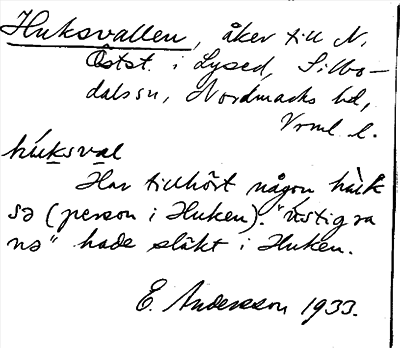 Huksvallen, åker till N.
Östst. i Lysed, Sillbo-
dals sn, Nordmarks hd,
Vrml. l.
húksval
Har tillhört någon hùk
sə (person i Huken). "ùstigra
nə" hade släkt i Huken.
E. Andersson 1933.